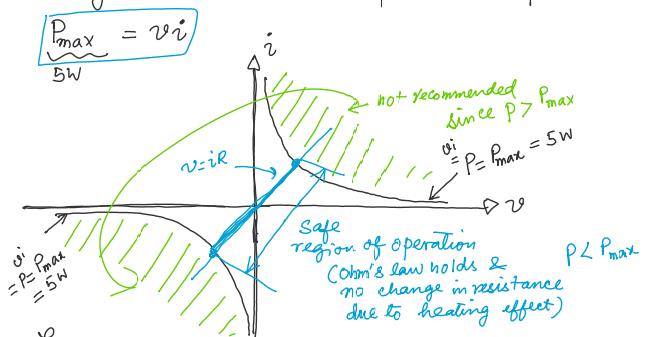 Pmax = vi
5W
i
not recommended
since P > Pmax
vi
= P = Pmax = 5W
v = iR
v
Safe
region of operation
(Ohm's law holds &
no change in resistance
due to heating effect)
P < Pmax
vi
= P = Pmax
= 5W